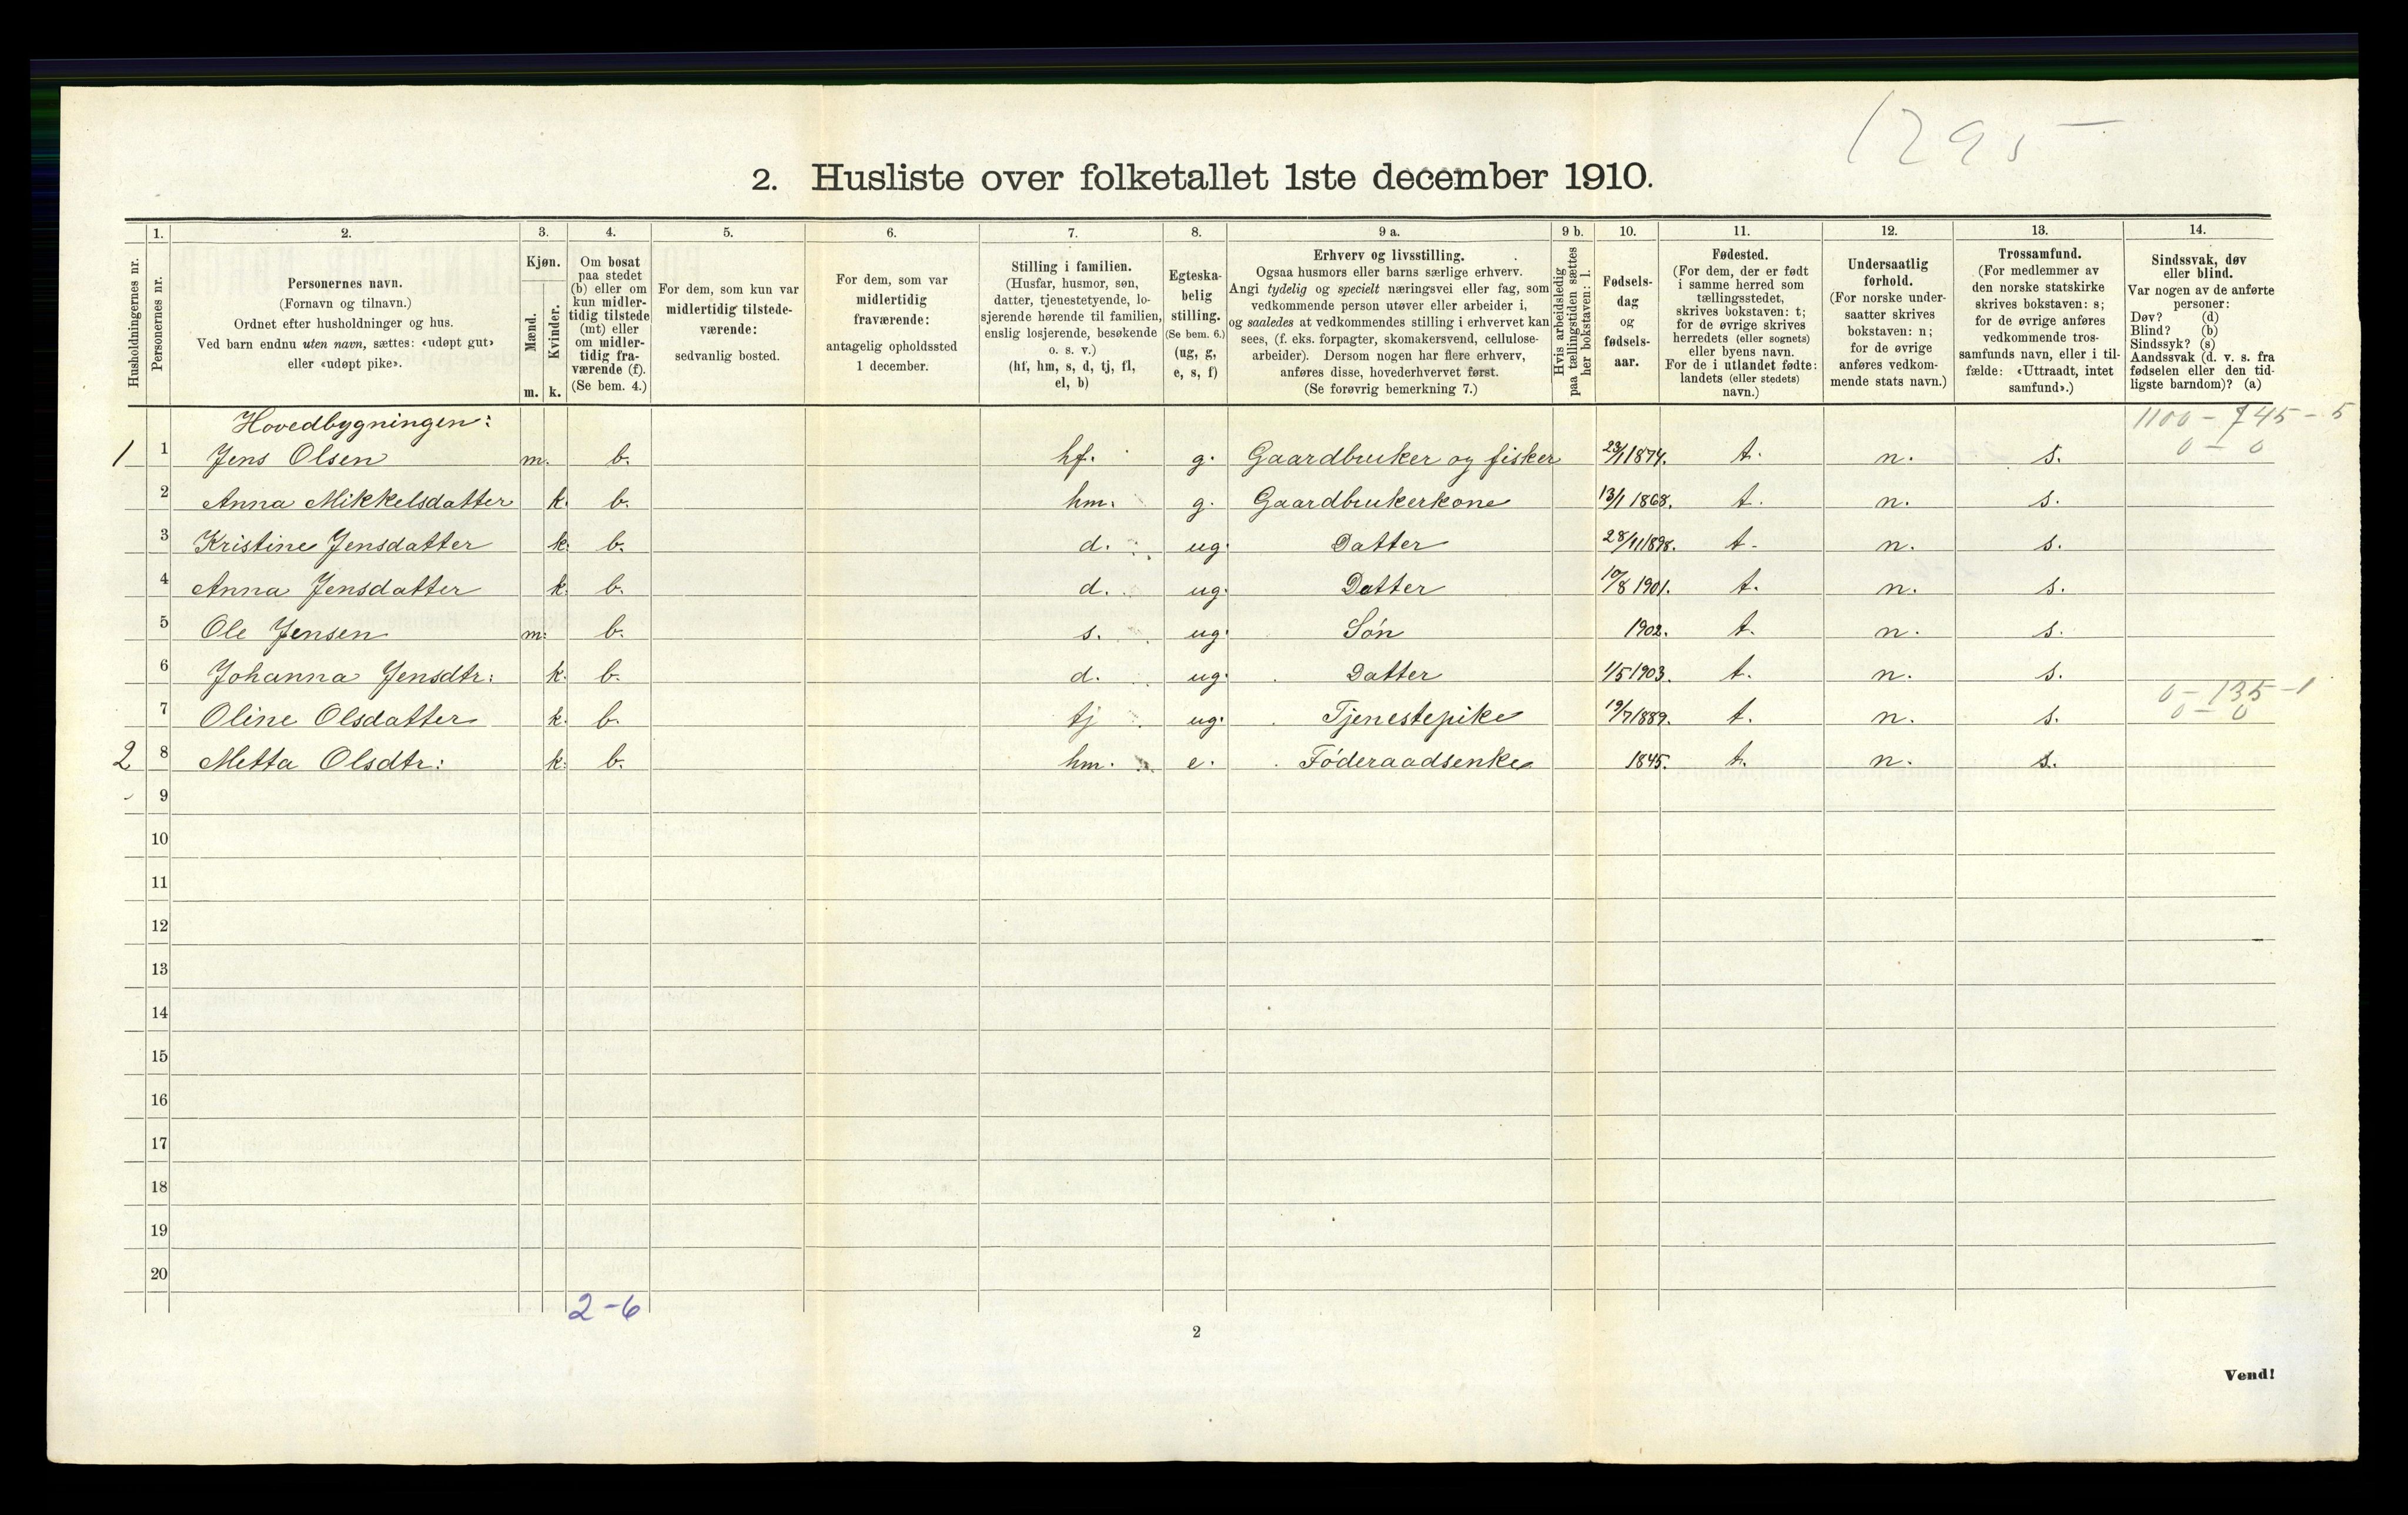 1295 —
2. Husliste over folketallet 1ste december 1910.
Husholdningernes nr.
1.
Personernes nr.
2.
Personernes navn.
(Fornavn og tilnavn.)
Ordnet efter husholdninger og hus.
Ved barn endnu uten navn, sættes: «udøpt gut»
eller «udøpt pike».
3.
Kjøn.
Mænd.
Kvinder.
m. k.
4.
Om bosat
paa stedet
(b) eller om
kun midler-
tidig tilstede
(mt) eller
om midler-
tidig fra-
værende (f).
(Se bem. 4.)
5.
For dem, som kun var
midlertidig tilstede-
værende:
sedvanlig bosted.
6.
For dem, som var
midlertidig
fraværende:
antagelig opholdssted
1 december.
7.
Stilling i familien.
(Husfar, husmor, søn,
datter, tjenestetyende, lo-
sjerende hørende til familien,
enslig losjerende, besøkende
o. s. v.)
(hf, hm, s, d, tj, fl,
el, b)
8.
Egteska-
belig
stilling.
(Se bem. 6.)
(ug, g,
e, s, f)
9 a.
Erhverv og livsstilling.
Ogsaa husmors eller barns særlige erhverv.
Angi tydelig og specielt næringsvei eller fag, som
vedkommende person utøver eller arbeider i,
og saaledes at vedkommendes stilling i erhvervet kan
sees, (f. eks. forpagter, skomakersvend, cellulose-
arbeider). Dersom nogen har flere erhverv,
anføres disse, hovederhvervet først.
(Se forøvrig bemerkning 7.)
9 b.
Hvis arbeidsledig
paa tællingstiden sættes
her bokstaven: l.
10.
Fødsels-
dag
og
fødsels-
aar.
11.
Fødested.
(For dem, der er født
i samme herred som
tællingsstedet,
skrives bokstaven: t;
for de øvrige skrives
herredets (eller sognets)
eller byens navn.
For de i utlandet fødte:
landets (eller stedets)
navn.)
12.
Undersaatlig
forhold.
(For norske under-
saatter skrives
bokstaven: n;
for de øvrige
anføres vedkom-
mende stats navn.)
13.
Trossamfund.
(For medlemmer av
den norske statskirke
skrives bokstaven: s;
for de øvrige anføres
vedkommende tros-
samfunds navn, eller i til-
fælde: «Uttraadt, intet
samfund».)
14.
Sindssvak, døv
eller blind.
Var nogen av de anførte
personer:
Døv? (d)
Blind? (b)
Sindssyk? (s)
Aandssvak (d. v. s. fra
fødselen eller den tid-
ligste barndom)? (a)
Hovedbygningen: 1100 – 745 – 5
1 1 Jens Olsen m. b. hf. g. Gaardbruker og fisker 23/1 1874. t. n. s. 0 – 0
2 Anna Mikkelsdatter k. b. hm. g. Gaardbrukerkone 13/1 1868. t. n. s.
3 Kristine Jensdatter k. b. d. ug. Datter 28/11 1898. t. n. s.
4 Anna Jensdatter k. b. d. ug. Datter 10/8 1901. t. n. s.
5 Ole Jensen m. b. s. ug. Søn 1902. t. n. s.
6 Johanna Jensdtr: k. b. d. ug. Datter 1/5 1903. t. n. s.
0 – 135 – 1
7 Oline Olsdatter k. b. tj ug. Tjenestepike 19/7 1889. t. n. s. 0 – 0
2 8 Metta Olsdtr: k. b. hm. e. Föderaadsenke 1845. t. n. s.
9
10
11
12
13
14
15
16
17
18
19
20
2 – 6
2
Vend!